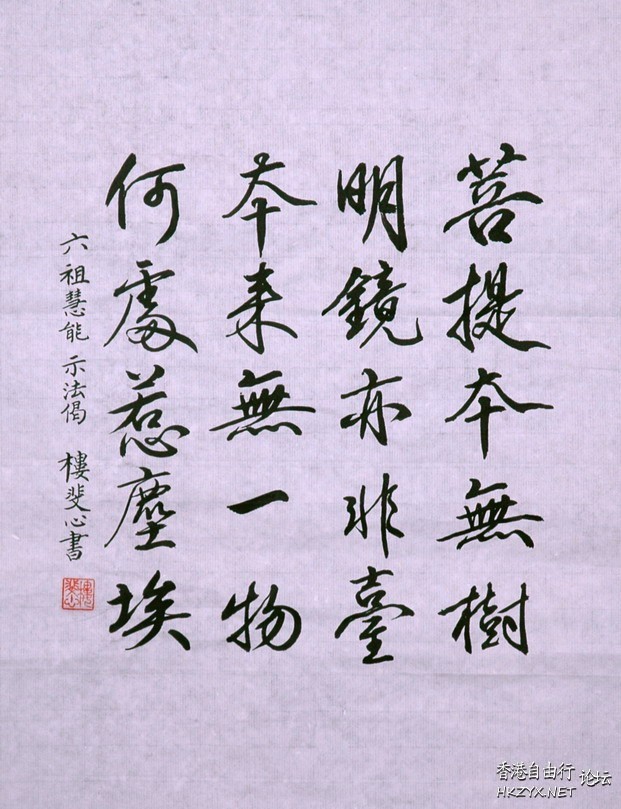 菩提本無樹
明鏡亦非臺
本来無一物
何處惹塵埃
六祖慧能示法偈 樓斐心書
香港自由行论坛
HKZYX.NET